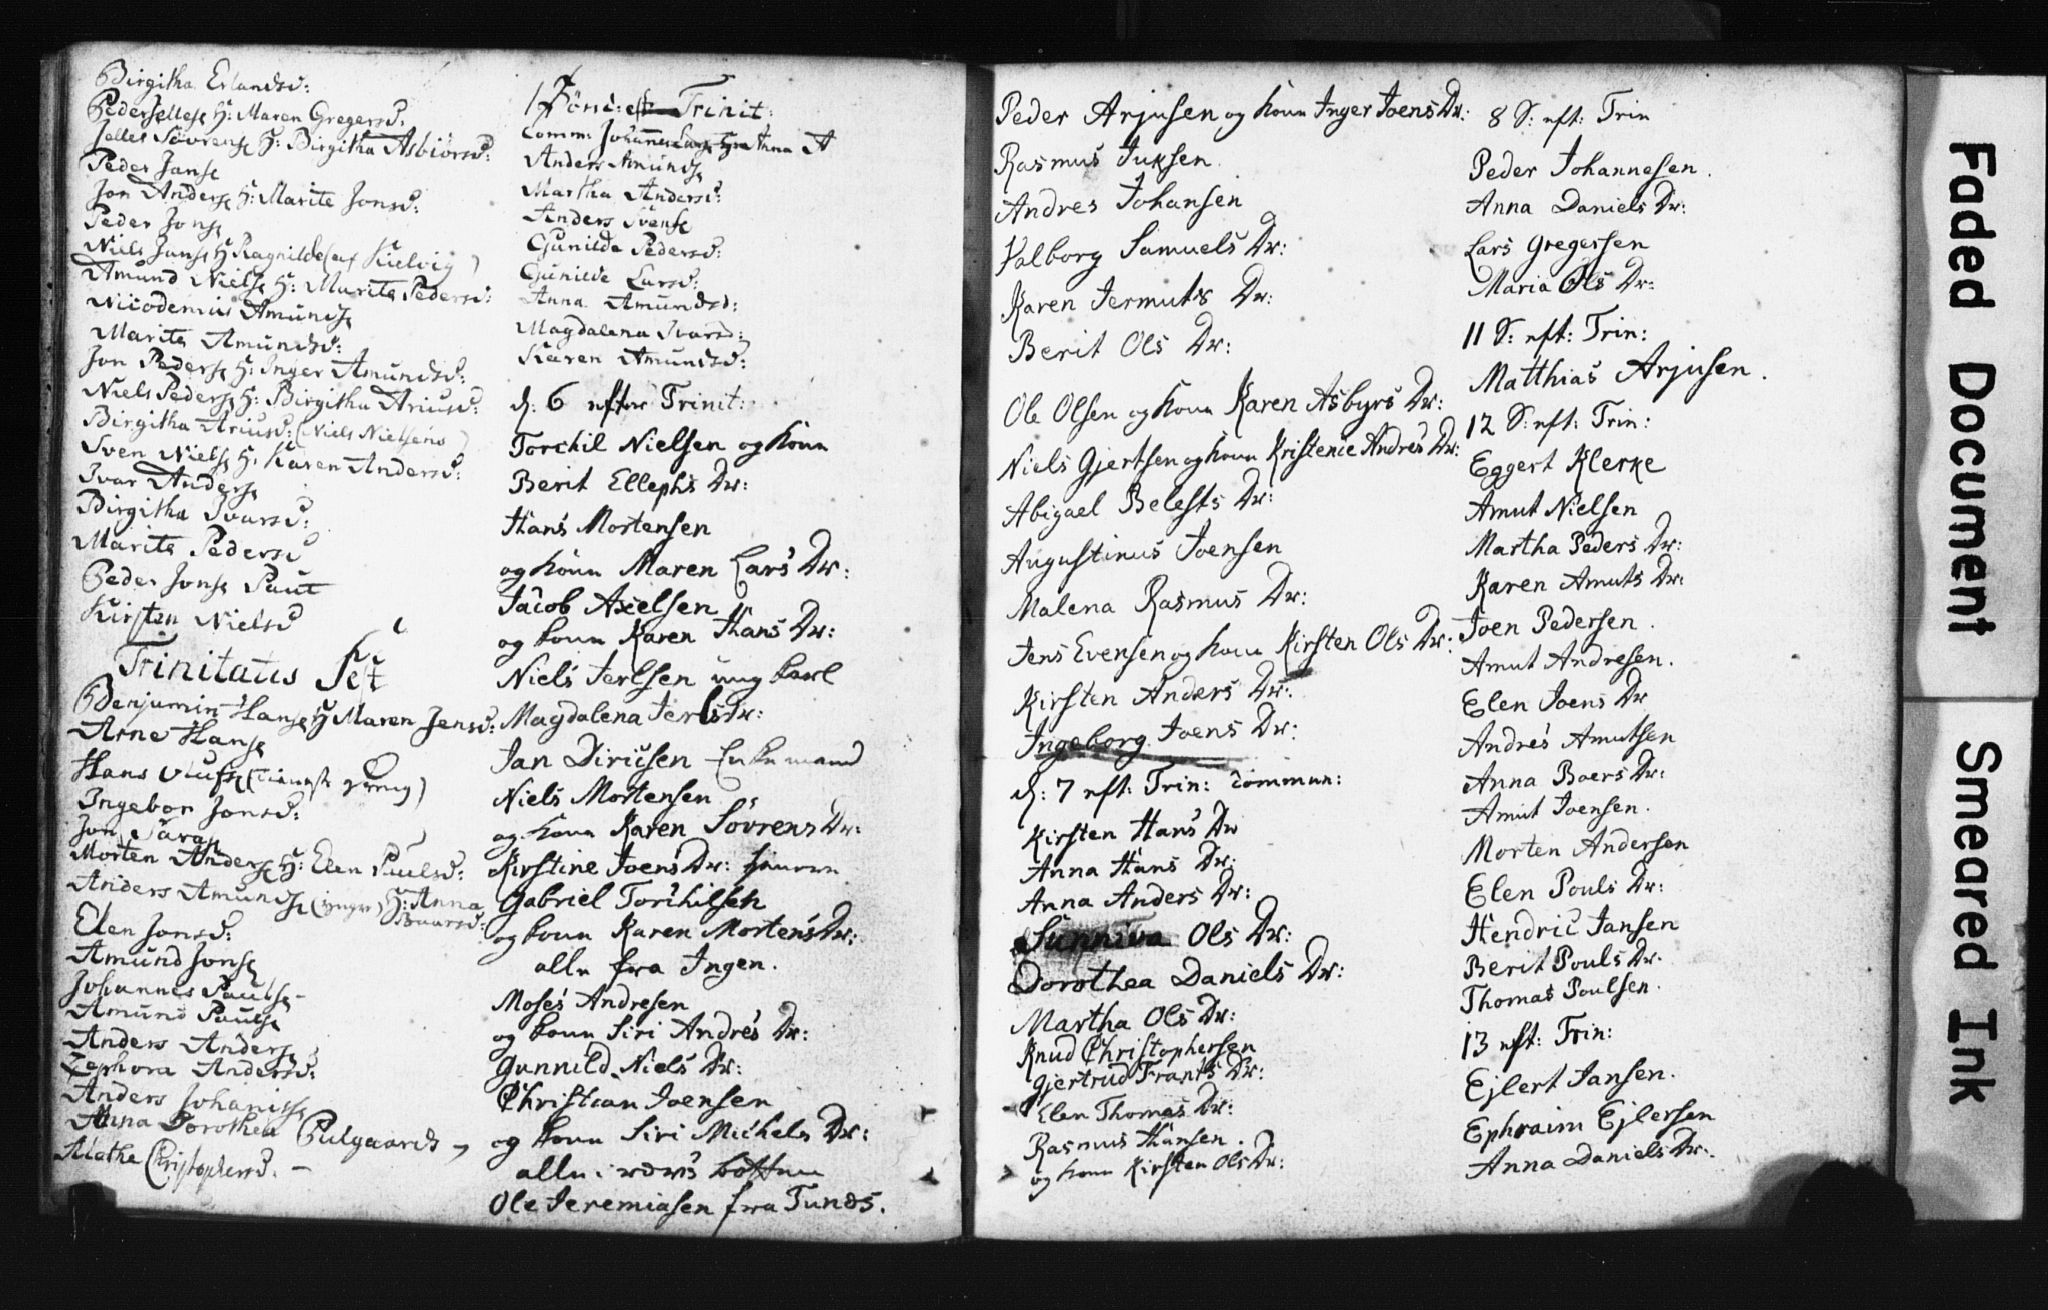 Birgitha Erlandsd:
Peder Jellesſ H: Maren Gregersd:
Jelles Sövrenſ H: Birgitha Asbiörsd:
Peder Janſ
Jon Anderſ H: Marite Jonsd:
Peder Jonſ
Niels Janſ H Ragnilde (af Kielvig)
Amund Nielſ H: Marite Pedersd:
Nicodemus Amundſ
Marite Amundsd:
Jon Pederſ H: Inger Amundsd:
Niels Pederſ H: Birgitha Ariusd:
Birgitha Ariusd: (Niels Nielsens)
Sven Nielſ H: Karen Andersd:
Ivar Anderſ
Birgitha Ivarsd:
Marite Pedersd
Peder Jonſ Paut
Kirsten Nielsd
Trinitatis Fest
Benjamin Hanſ H Maren Jensd:
Arne Hanſ
Hans Olufſ
Ingebor Jonsd:
Jon
Morten Anderſ H: Elen Paulsd:
Anders Amundſ H: Anna
Elen Jonsd:
Amund Jonſ
Johannes Paulſ
Amund Paulſ
Anders Anderſ
Zephora Andersd:
Anders Johanisſ
Anna Dorothea Pulgaards
Alethe Christophersd. –
Trinit:
Comm: Johannes Anna A
Anders Amundſ
Martha Andersd:
Anders Svenſ
Gunilde Pedersd:
Gunilde Larsd:
Anna Amundsd:
Magdalena Ivarsd:
Karen Amundsd:
d: 6 efter Trinit:
Torchil Nielsen og Konn
Berit Ellephs Dr:
Hans Mortensen
og konn Maren Lars Dr:
Jacob Axelsen
og konn Karen Hans Dr:
Niels Jerlsen ung karl
Magdalena Jerls Dr:
Jan Diricsen Enkemand
Niels Mortensen
og konn Karen Sövrens Dr:
Kirstine Joens Dr:
Gabriel Torchilsen
og konn Karen Mortens Dr:
alle fra Ingen.
Moses Andresen
og konn Siri Andres Dr:
Gunnild Niels Dr:
Christian Joensen
og konn Siri Michels Dr:
alle i værs botten
Ole Jeremiasen fra Tunes.
Peder Arjusen og konn Inger Joens Dr:
Rasmus Juksen.
Andres Johansen
Valborg Samuels Dr:
Karen Jermuts Dr:
Berit Ols Dr:
Ole Olsen og konn Karen Asbyrs Dr:
Niels Gjertsen og konn Kristence Andres Dr:
Abigael Belests Dr:
Augustinus Joensen
Malena Rasmus Dr:
Jens Evensen og konn Kirsten Ols Dr:
Kirsten Anders Dr:
Ingeborg Joens Dr:
d: 7 eft: Trin: commun:
Kirsten Hans Dr
Anna Hans Dr:
Anna Anders Dr:
Sunniva Ols Dr:
Dorothea Daniels Dr:
Martha Ols Dr:
Knud Christophersen
Gjertrud Frants Dr:
Elen Thomas Dr:
Rasmus Hansen.
og konn Kirsten Ols Dr:
8 S: eft: Trin
Peder Johannesen.
Anna Daniels Dr:
Lars Gregersen
Maria Ols Dr:
11 S: eft: Trin:
Matthias Arjusen.
12 S: eft: Trin:
Eggert Klerke
Amut Nielsen
Martha Peders Dr:
Karen Amuts Dr:
Joen Pedersen.
Amut Andresen.
Elen Joens Dr
Andres Amutsen
Anna Baers Dr:
Amut Joensen.
Morten Andersen
Elen Pouls Dr:
Hendric Jansen
Berit Pouls Dr.
Thomas Poulsen.
13 eft: Trin:
Ejlert Jansen.
Ephraim Ejlersen
Anna Daniels Dr:
Faded Document
Smeared Ink